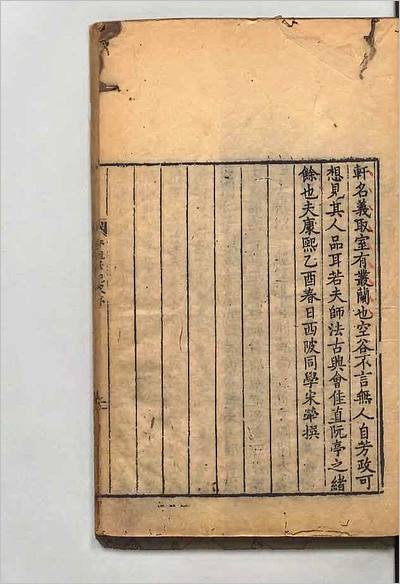 軒名義取室有叢蘭也空谷不言無人自芳政可
想見其人品耳若夫師法古與會佳直阮亭之緒
餘也夫康熙乙酉春日西陂同學宋犖撰